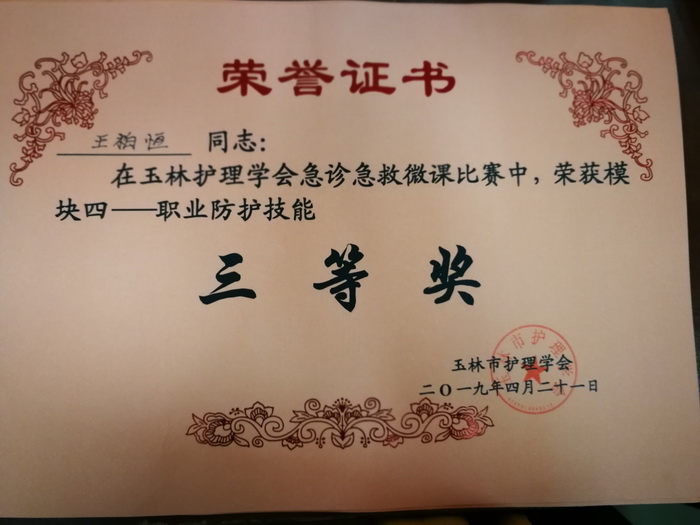 荣誉证书
王柏恒 同志：
在玉林护理学会急诊急救微课比赛中，荣获模
块四——职业防护技能
三等奖
玉林市护理学会
二〇一九年四月二十一日